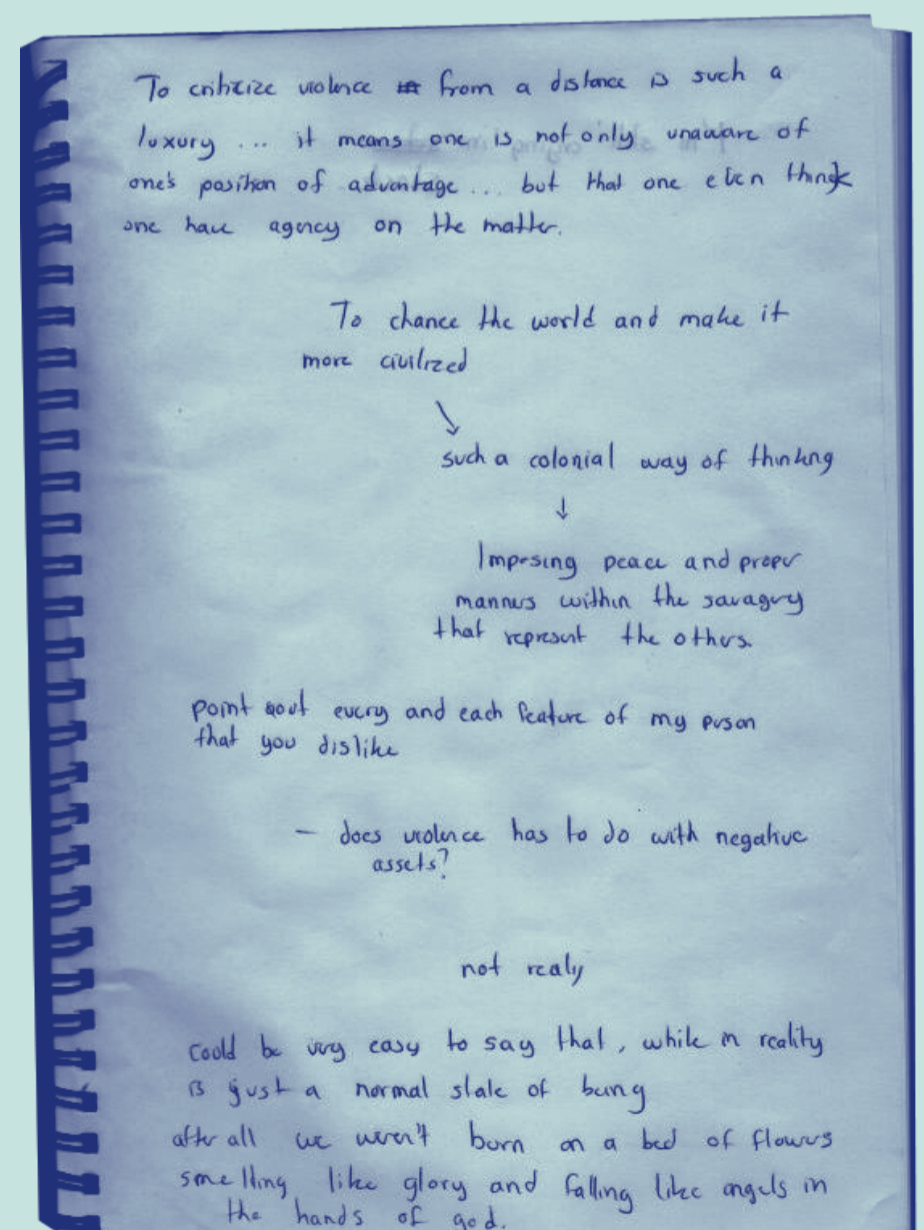 To critizize violence from a distance is such a
luxury ... it means one is not only unaware of
one's position of advantage... but that one even think
one have agency on the matter.
To chance the world and make it
more civilized
↘
such a colonial way of thinking
↓
Imposing peace and proper
manners within the savagery
that represent the others.
point out every and each feature of my person
that you dislike
– does violence has to do with negative
assets?
not realy
could be very easy to say that, while in reality
is just a normal state of being
after all we weren't born on a bed of flowers
smelling like glory and falling like angels in
the hands of god.